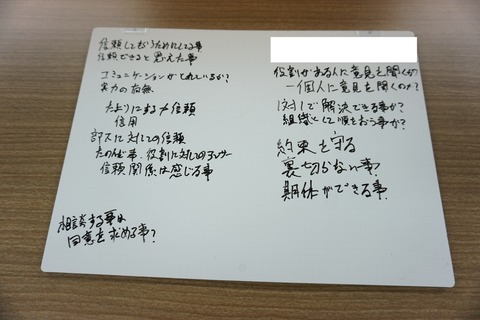 信頼してもらうためにしてる事
信頼できると思えた事
コミュニケーションがとれているか?
実力の有無
たよりにする ≠ 信頼
信用
部下に対しての信頼
信頼関係は感じる事
相談する事は
同意を求める事?
役割がある人に意見を聞くか
一個人に意見を聞くのか?
1対1で解決できる事か?
組織として順をおう事か?
約束を守る
裏切らない事
期待ができる事